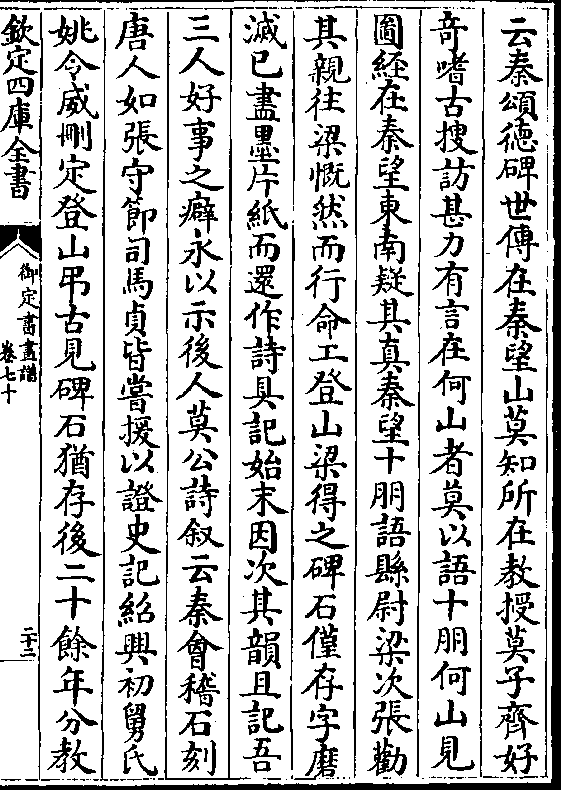 云秦頌徳碑世傳在秦望山莫知所在教授莫子齊好
奇嗜古搜訪甚力有言在何山者莫以語十朋何山見
圖經在秦望東南疑其真秦望十朋語縣尉梁次張勸
其親往梁慨然而行命工登山梁得之碑石僅存字磨
滅已盡墨片紙而還作詩具記始末因次其韻且記吾
三人好事之癖永以示後人莫公詩叙云秦會稽石刻
唐人如張守節司馬貞皆嘗援以證史記紹興初舅氏
姚令威刪定登山弔古見碑石猶存後二十餘年分教
欽定四庫全書
御定書畫譜
卷七十
二十二